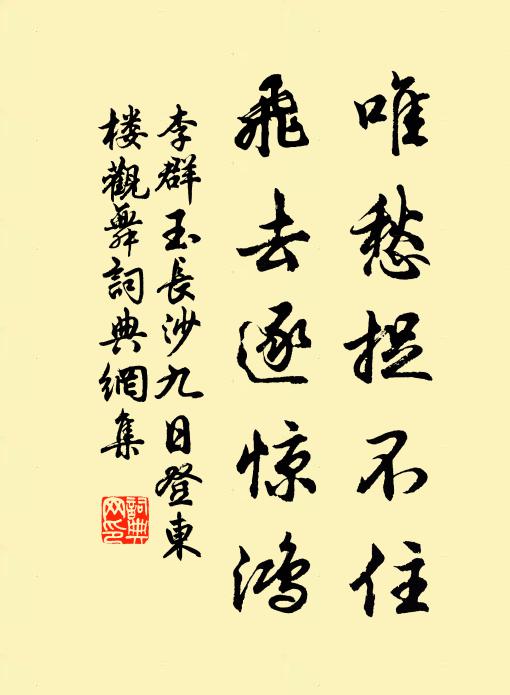 唯愁捉不住
飛去逐惊鸿
李群玉長沙九日登東
楼觀舞詞典網集
詞典
网印